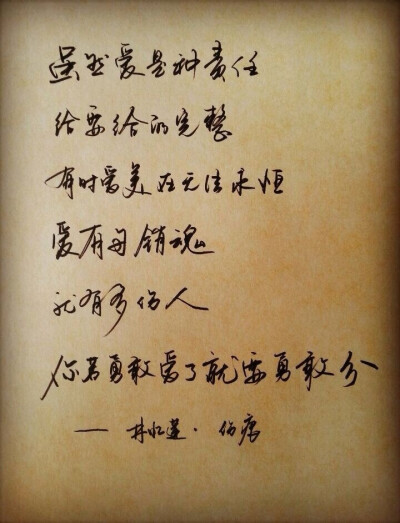 虽然爱是种责任
给要给的完整
有时爱美在无法永恒
爱有多销魂
就有多伤人
你若勇敢爱了就要勇敢分
—— 林忆莲·伤痕